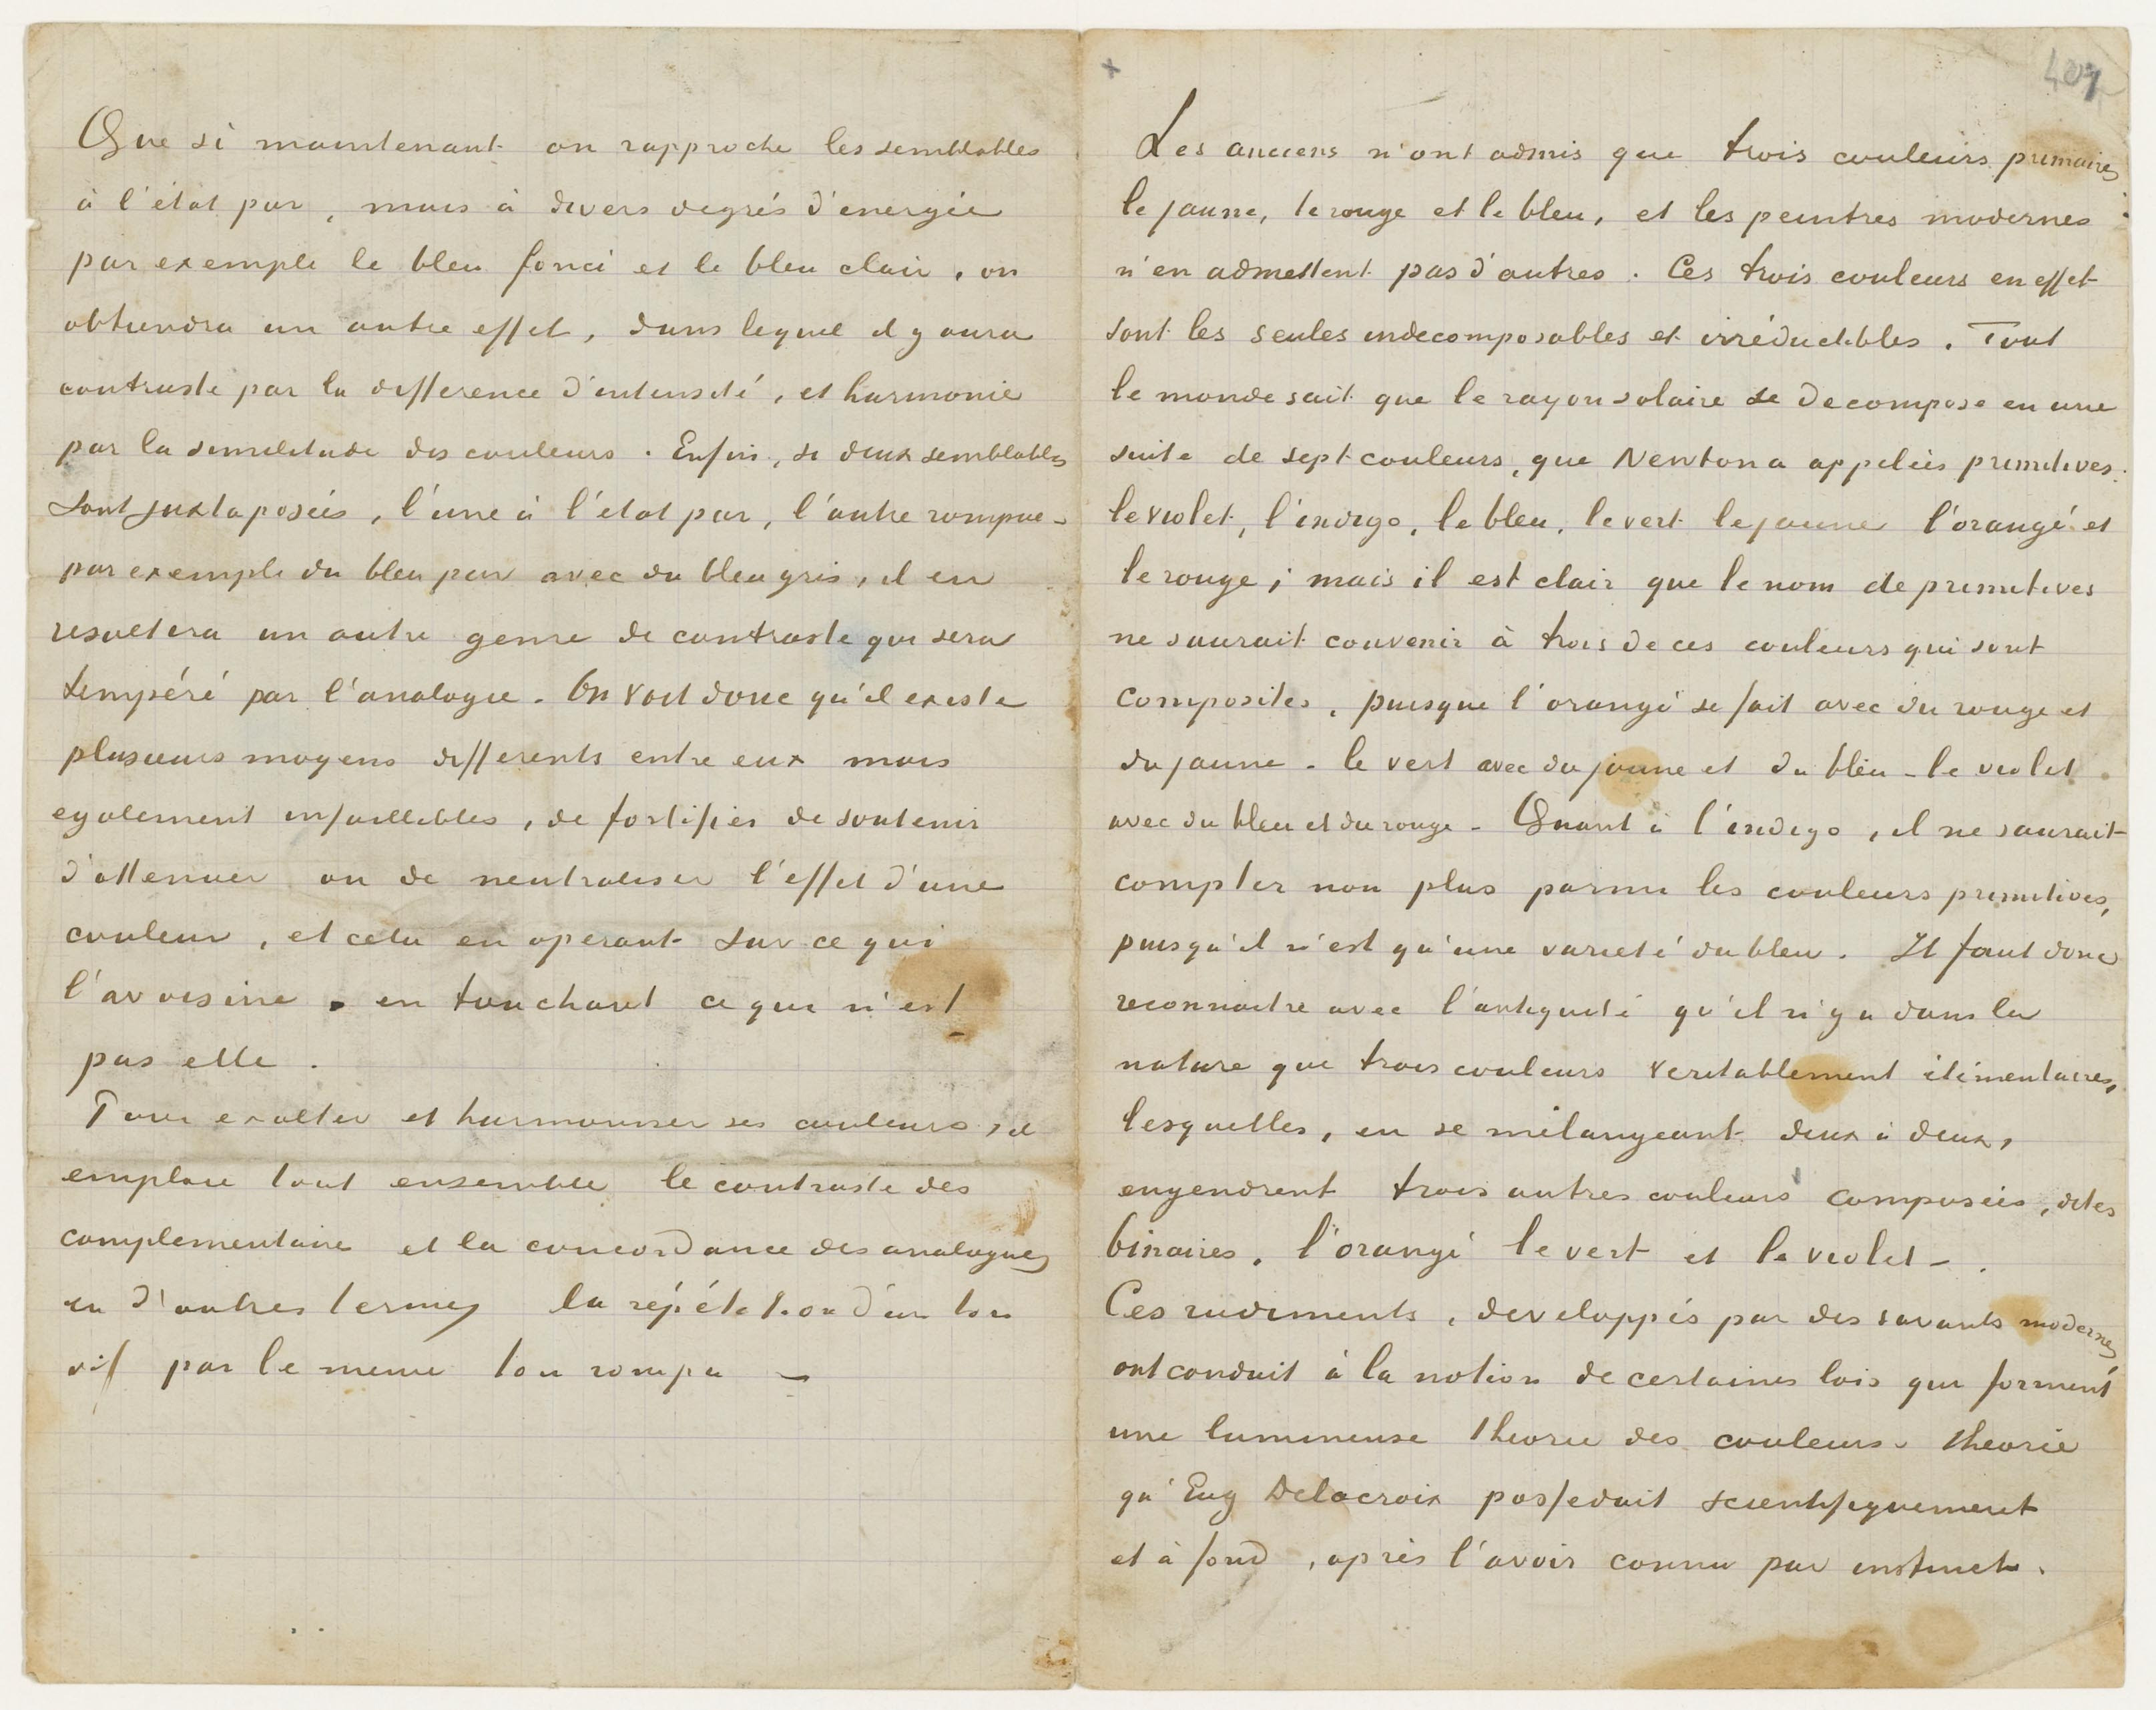 Que si maintenant on rapproche les semblables
à l'état pur, mais à divers degrés d'energie
par exemple le bleu foncé et le bleu clair, on
obtiendra un autre effet, dans lequel il y aura
contraste par la difference d'intensité, et harmonie
par la similitude des couleurs. Enfin, si deux semblables
sont juxtaposées, l'une à l'état pur, l'autre rompue -
par exemple du bleu pur avec du bleu gris, il en
resultera un autre genre de contraste qui sera
tempéré par l'analogie. On voit donc qu'il existe
plusieurs moyens differents entre eux mais
egalement infaillibles, de fortifier de soutenir
d'attenuer ou de neutraliser l'effet d'une
couleur, et cela en operant sur ce qui
l'avoisine, en touchant ce qui n'est
pas elle.
Pour exalter et harmoniser ses couleurs, il
emploie tout ensemble le contraste des
complementaire et la concordance des analogues
en d'autres termes la répétition d'un ton
vif par le meme ton rompu -
+
409
Les anciens n'ont admis que trois couleurs primaires
le jaune, le rouge et le bleu, et les peintres modernes
n'en admettent pas d'autres. Ces trois couleurs en effet
sont les seules indecomposables et irréductibles. Tout
le monde sait que le rayon solaire se decompose en une
suite de sept couleurs, que Newton a appelées primitives:
le violet, l'indigo, le bleu, le vert le jaune l'orangé et
le rouge; mais il est clair que le nom de primitives
ne saurait convenir à trois de ces couleurs qui sont
composites, puisque l'orangé se fait avec du rouge et
du jaune - le vert avec du jaune et du bleu - le violet
avec du bleu et du rouge - Quant à l'indigo, il ne saurait
compter non plus parmi les couleurs primitives,
puisqu'il n'est qu'une varieté du bleu. Il faut donc
reconnaitre avec l'antiquité qu'il n'y a dans la
nature que trois couleurs veritablement élémentaires,
lesquelles, en se mélangeant deux à deux,
engendrent trois autres couleurs composées, dites
binaires, l'orangé le vert et le violet -.
Ces rudiments, developpés par des savants modernes
ont conduit à la notion de certaines lois qui forment
une lumineuse theorie des couleurs. theorie
qu'Eug Delacroix possedait scientifiquement
et à fond, après l'avoir connu par instinct.